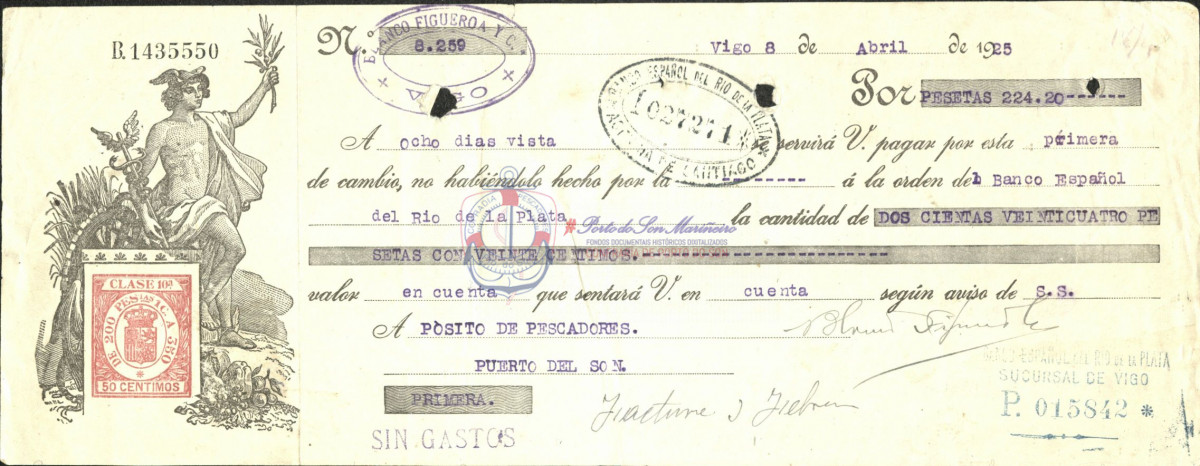 B.1435550
N.º 8.259
BLANCO FIGUEROA Y C.ª
Vigo 8 de Abril de 1925
BANCO ESPAÑOL DEL RIO DE LA PLATA
1027271
SANTIAGO
Por PESETAS 224.20------
A ocho dias vista se servirá V. pagar por esta primera
de cambio, no habiéndolo hecho por la -------- á la orden del Banco Español
del Rio de la Plata la cantidad de DOS CIENTAS VEINTICUATRO PE
SETAS CON VEINTE CENTIMOS.------------------
COFRADIA PESCADORES
#Porto do Son Mariñeiro
FONDOS DOCUMENTAIS HISTÓRICOS DIXITALIZADOS
valor en cuenta que sentará V. en cuenta según aviso de S.S.
A PÒSITO DE PESCADORES.
PUERTO DEL SON.
PRIMERA.
SIN GASTOS
BANCO ESPAÑOL DEL RIO DE LA PLATA
SUCURSAL DE VIGO
P. 015842 *
CLASE 10ª
DE 200 PESTAS 1 C. A 350
50 CENTIMOS